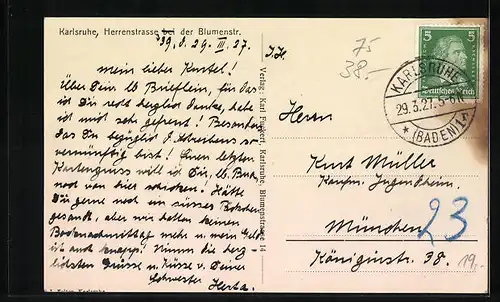 Karlsruhe, Herrenstrasse bei der Blumenstr.
39. J. 29. III. 27.
J. K.
mein lieber Kurtel!
Über Dein lb. Brieflein, für das
ich Dir recht herzlich danke, habe
ich mich sehr gefreut! Besonders
das Du bezüglich d. Schreibens so
vernünftig bist! Einen letzten
Kartengruss will ich Dir, lb. Bub,
noch von hier schicken! Hätte
Dir gerne noch ein süsses
gesandt, aber wir hatten keinen
mehr u. mein Geld
ist auch knapp! Nimm die herz-
lichsten Grüsse u. Küsse v. Deiner
Schwester
Herta.
Verlag: Karl Karlsruhe, Blumenstrasse 14
75
38.-
5 5
Deutsches Reich
KARLSRUHE
29.3.27. 5-6N
* (BADEN) 1.
Herrn
Kurt Müller
Kaufm. Jugendheim.
München
Königinstr. 38.
23
19,-
Karlsruhe